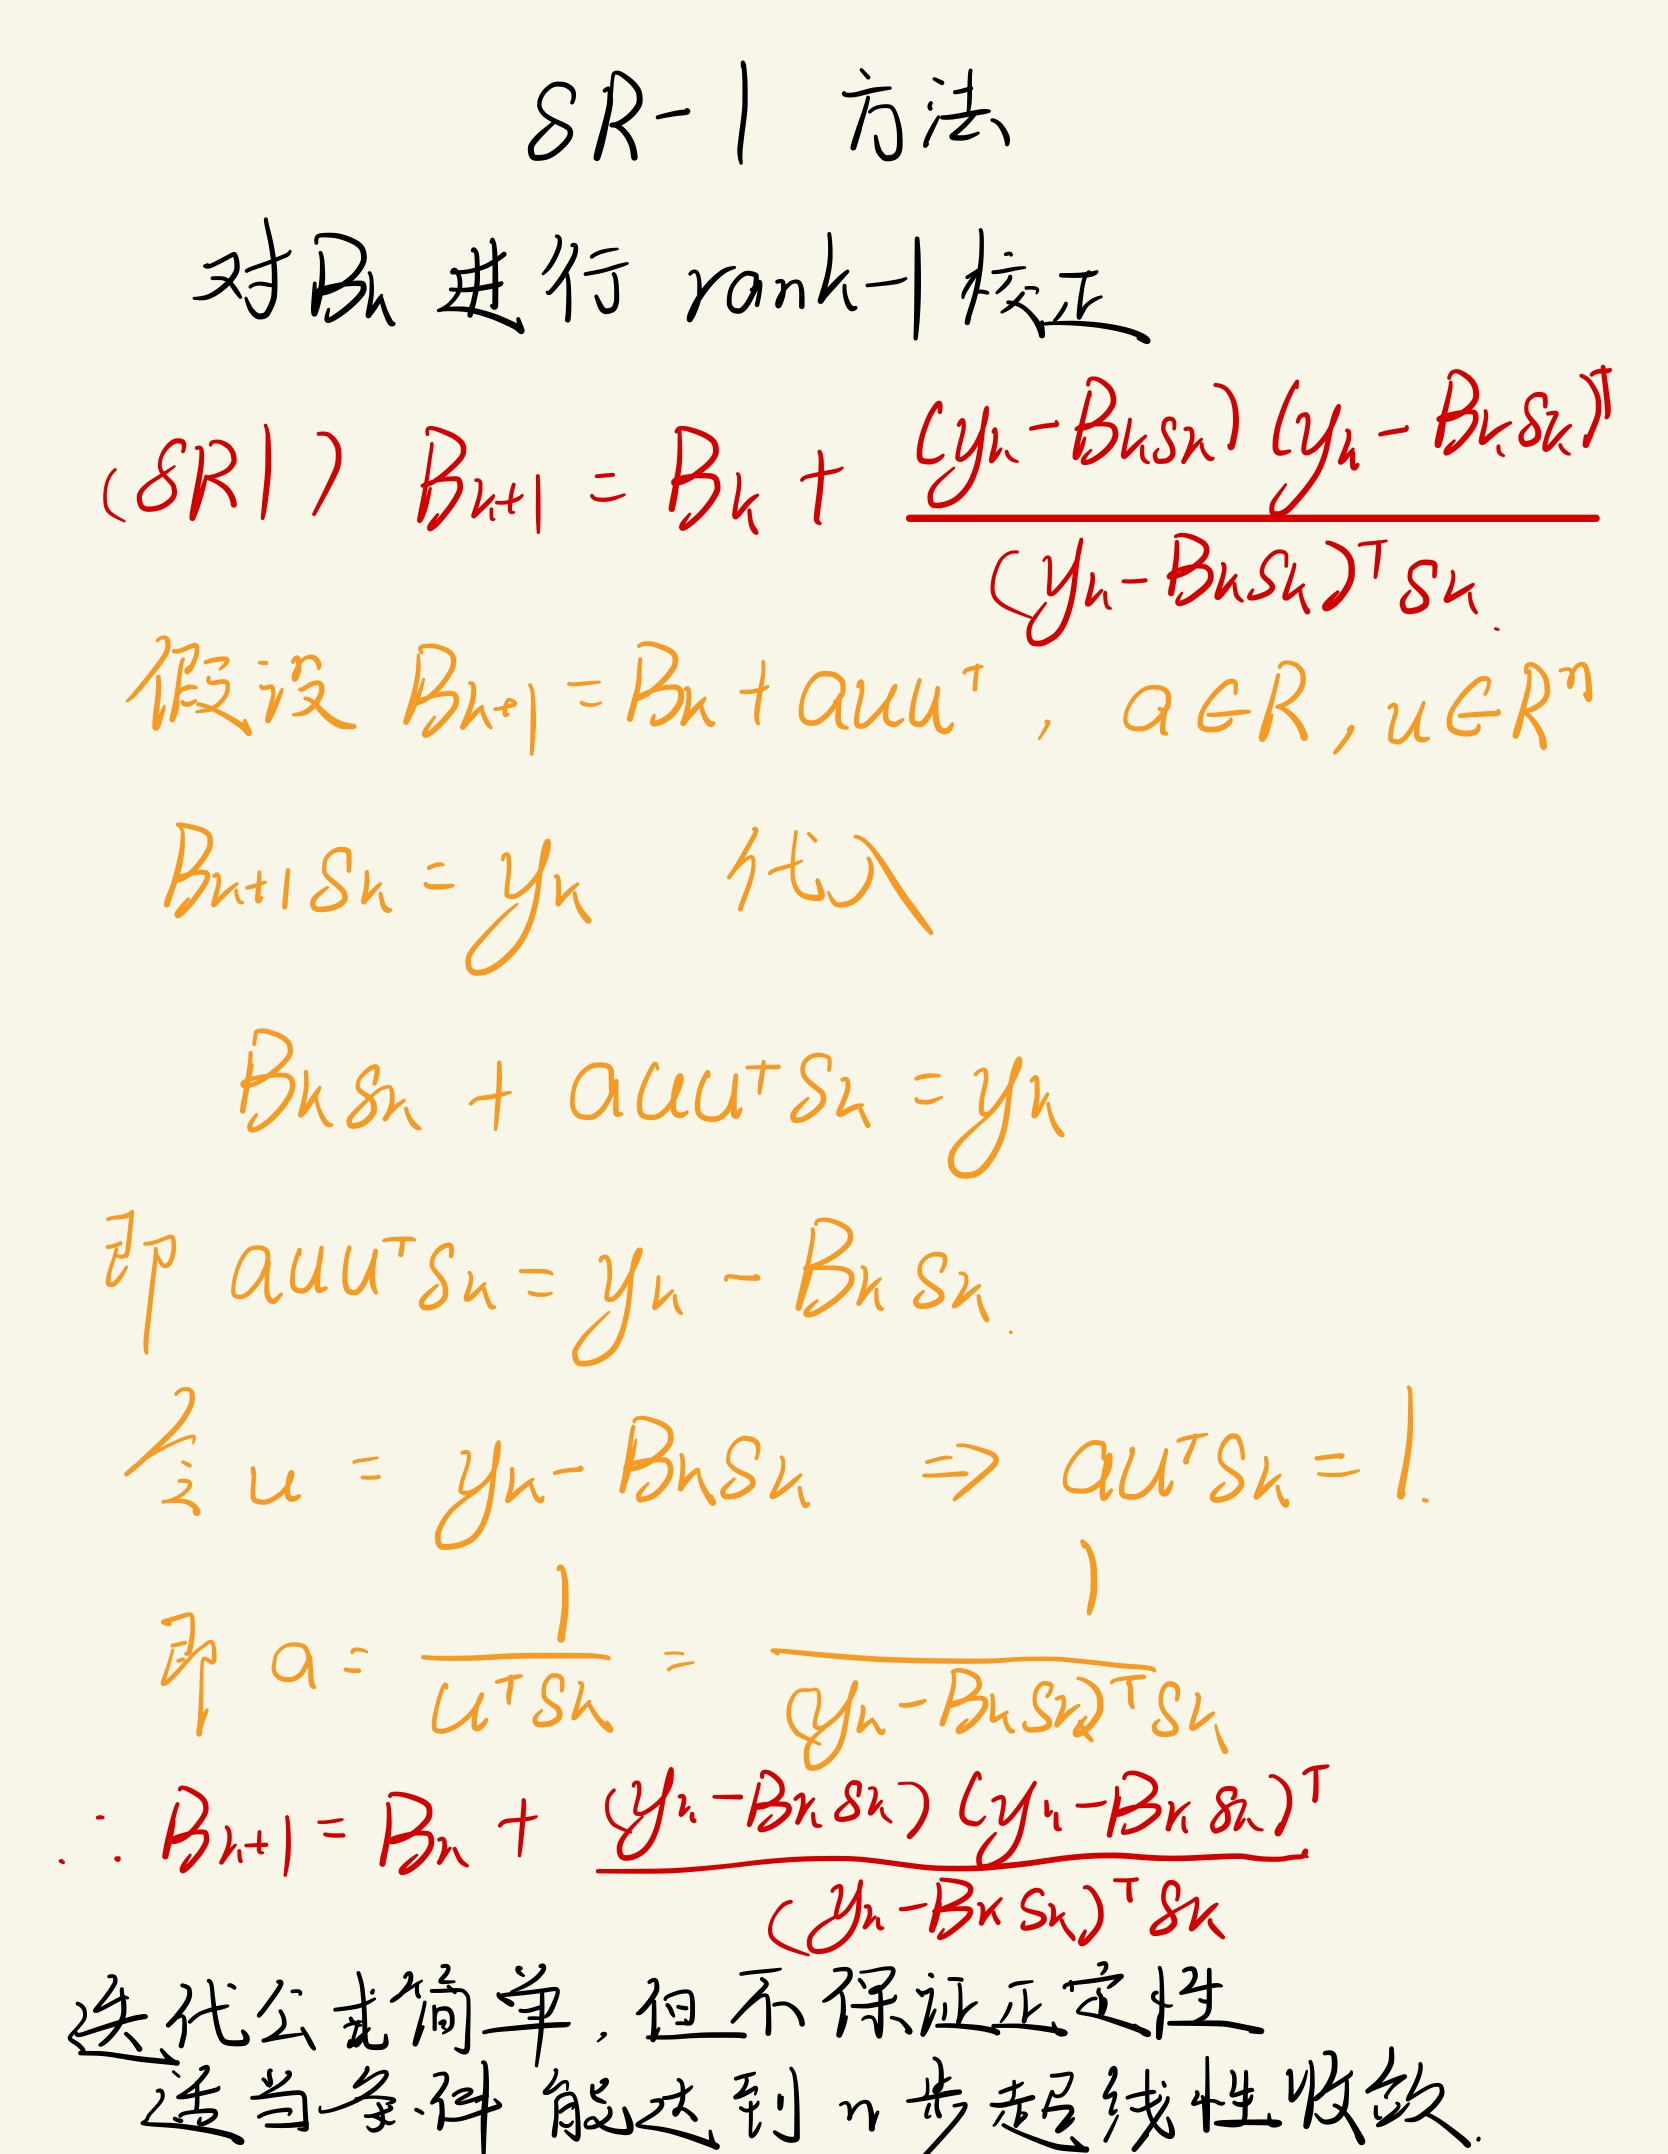 SR-1 方法
对Bₖ 进行 rank-1校正
(SR1) Bₖ₊₁ = Bₖ + \frac{(yₖ-Bₖsₖ)(yₖ-Bₖsₖ)ᵀ}{(yₖ-Bₖsₖ)ᵀsₖ}.
假设 Bₖ₊₁=Bₖ+auuᵀ, a∈R, u∈Rⁿ
Bₖ₊₁sₖ=yₖ 代入
Bₖsₖ + auuᵀsₖ=yₖ
即 auuᵀsₖ=yₖ-Bₖsₖ.
令 u = yₖ-Bₖsₖ ⇒ auᵀsₖ=1.
即 a= \frac{1}{uᵀsₖ} = \frac{1}{(yₖ-Bₖsₖ)ᵀsₖ}
∴ Bₖ₊₁=Bₖ+ \frac{(yₖ-Bₖsₖ)(yₖ-Bₖsₖ)ᵀ}{(yₖ-Bₖsₖ)ᵀsₖ}
迭代公式简单,但不保证正定性
适当条件能达到n步超线性收敛.